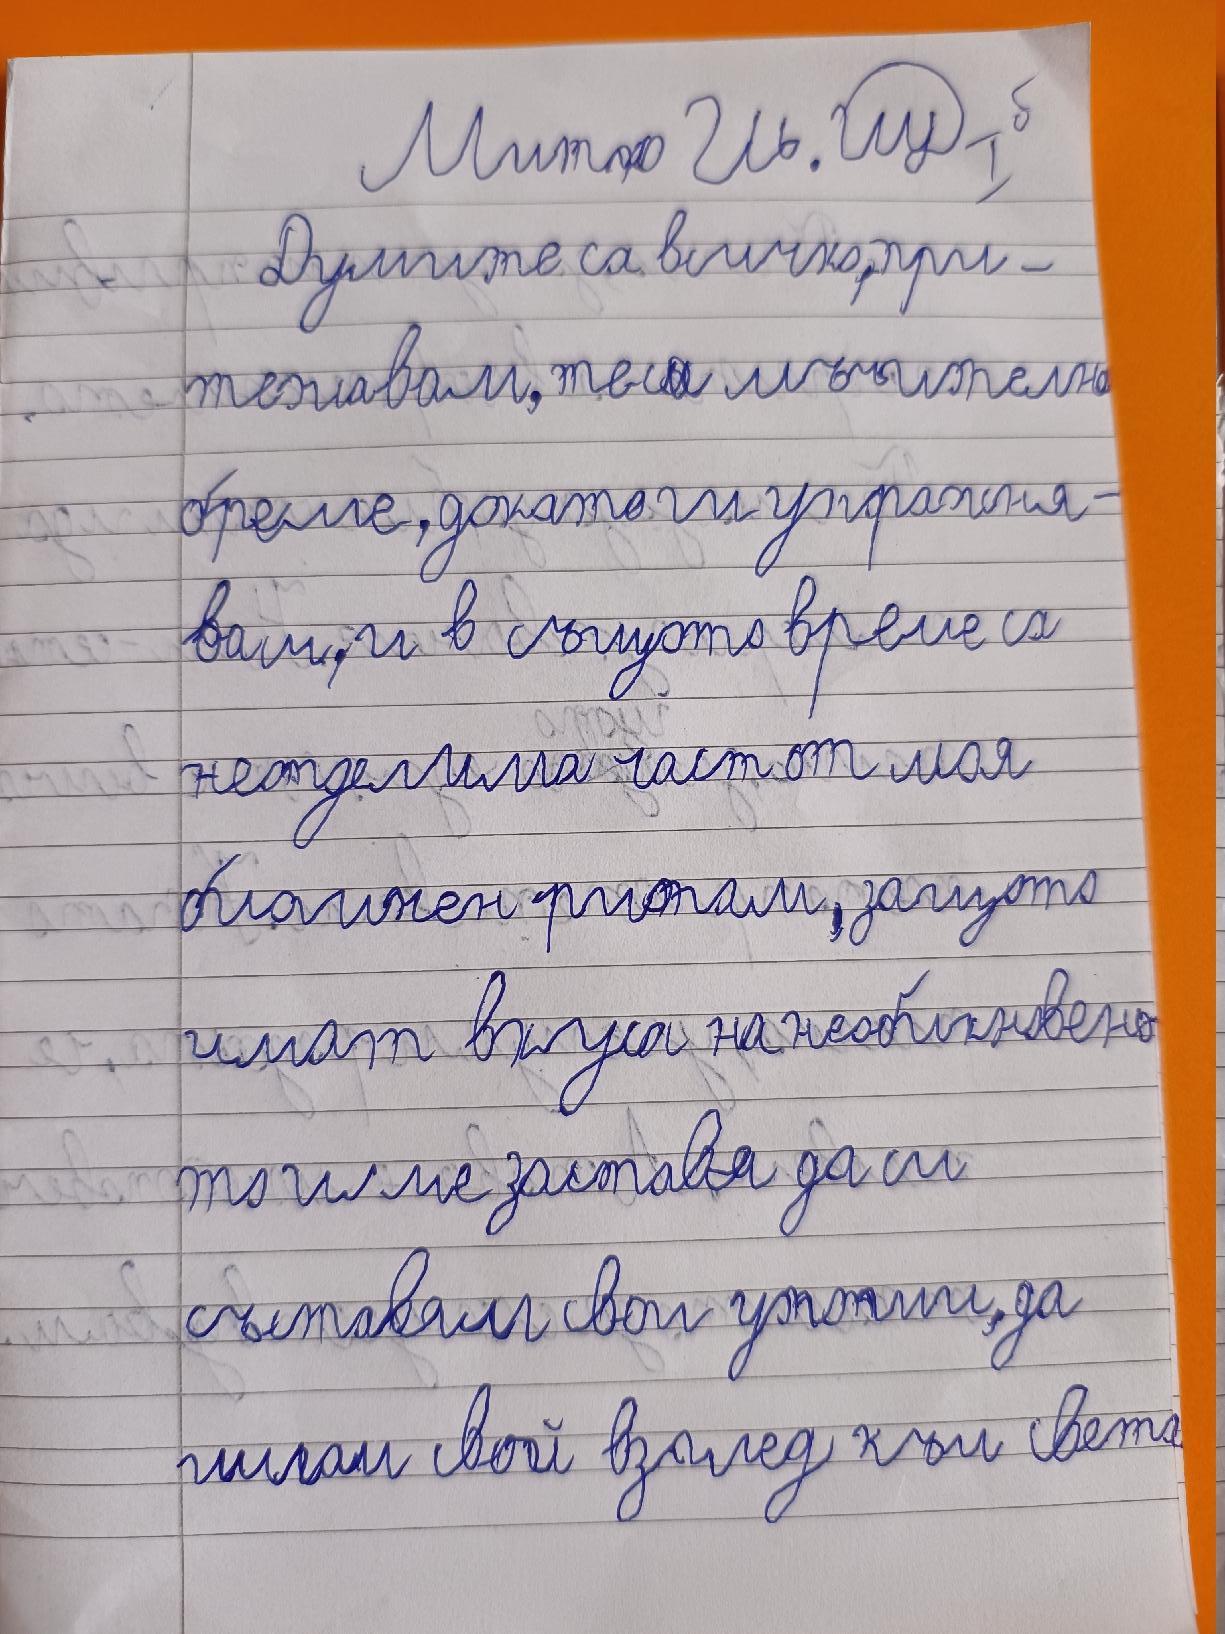 Митко
Думите са всичко, при-
тежавам, те са мъчително
бреме, докато ги упражня-
вам, и в същото време са
неотделима част от моя
блажен ритам, защото
имат вкуса на необикновено
то и ме заставя да си
съставям свои утопии, да
имам свой взглед към света